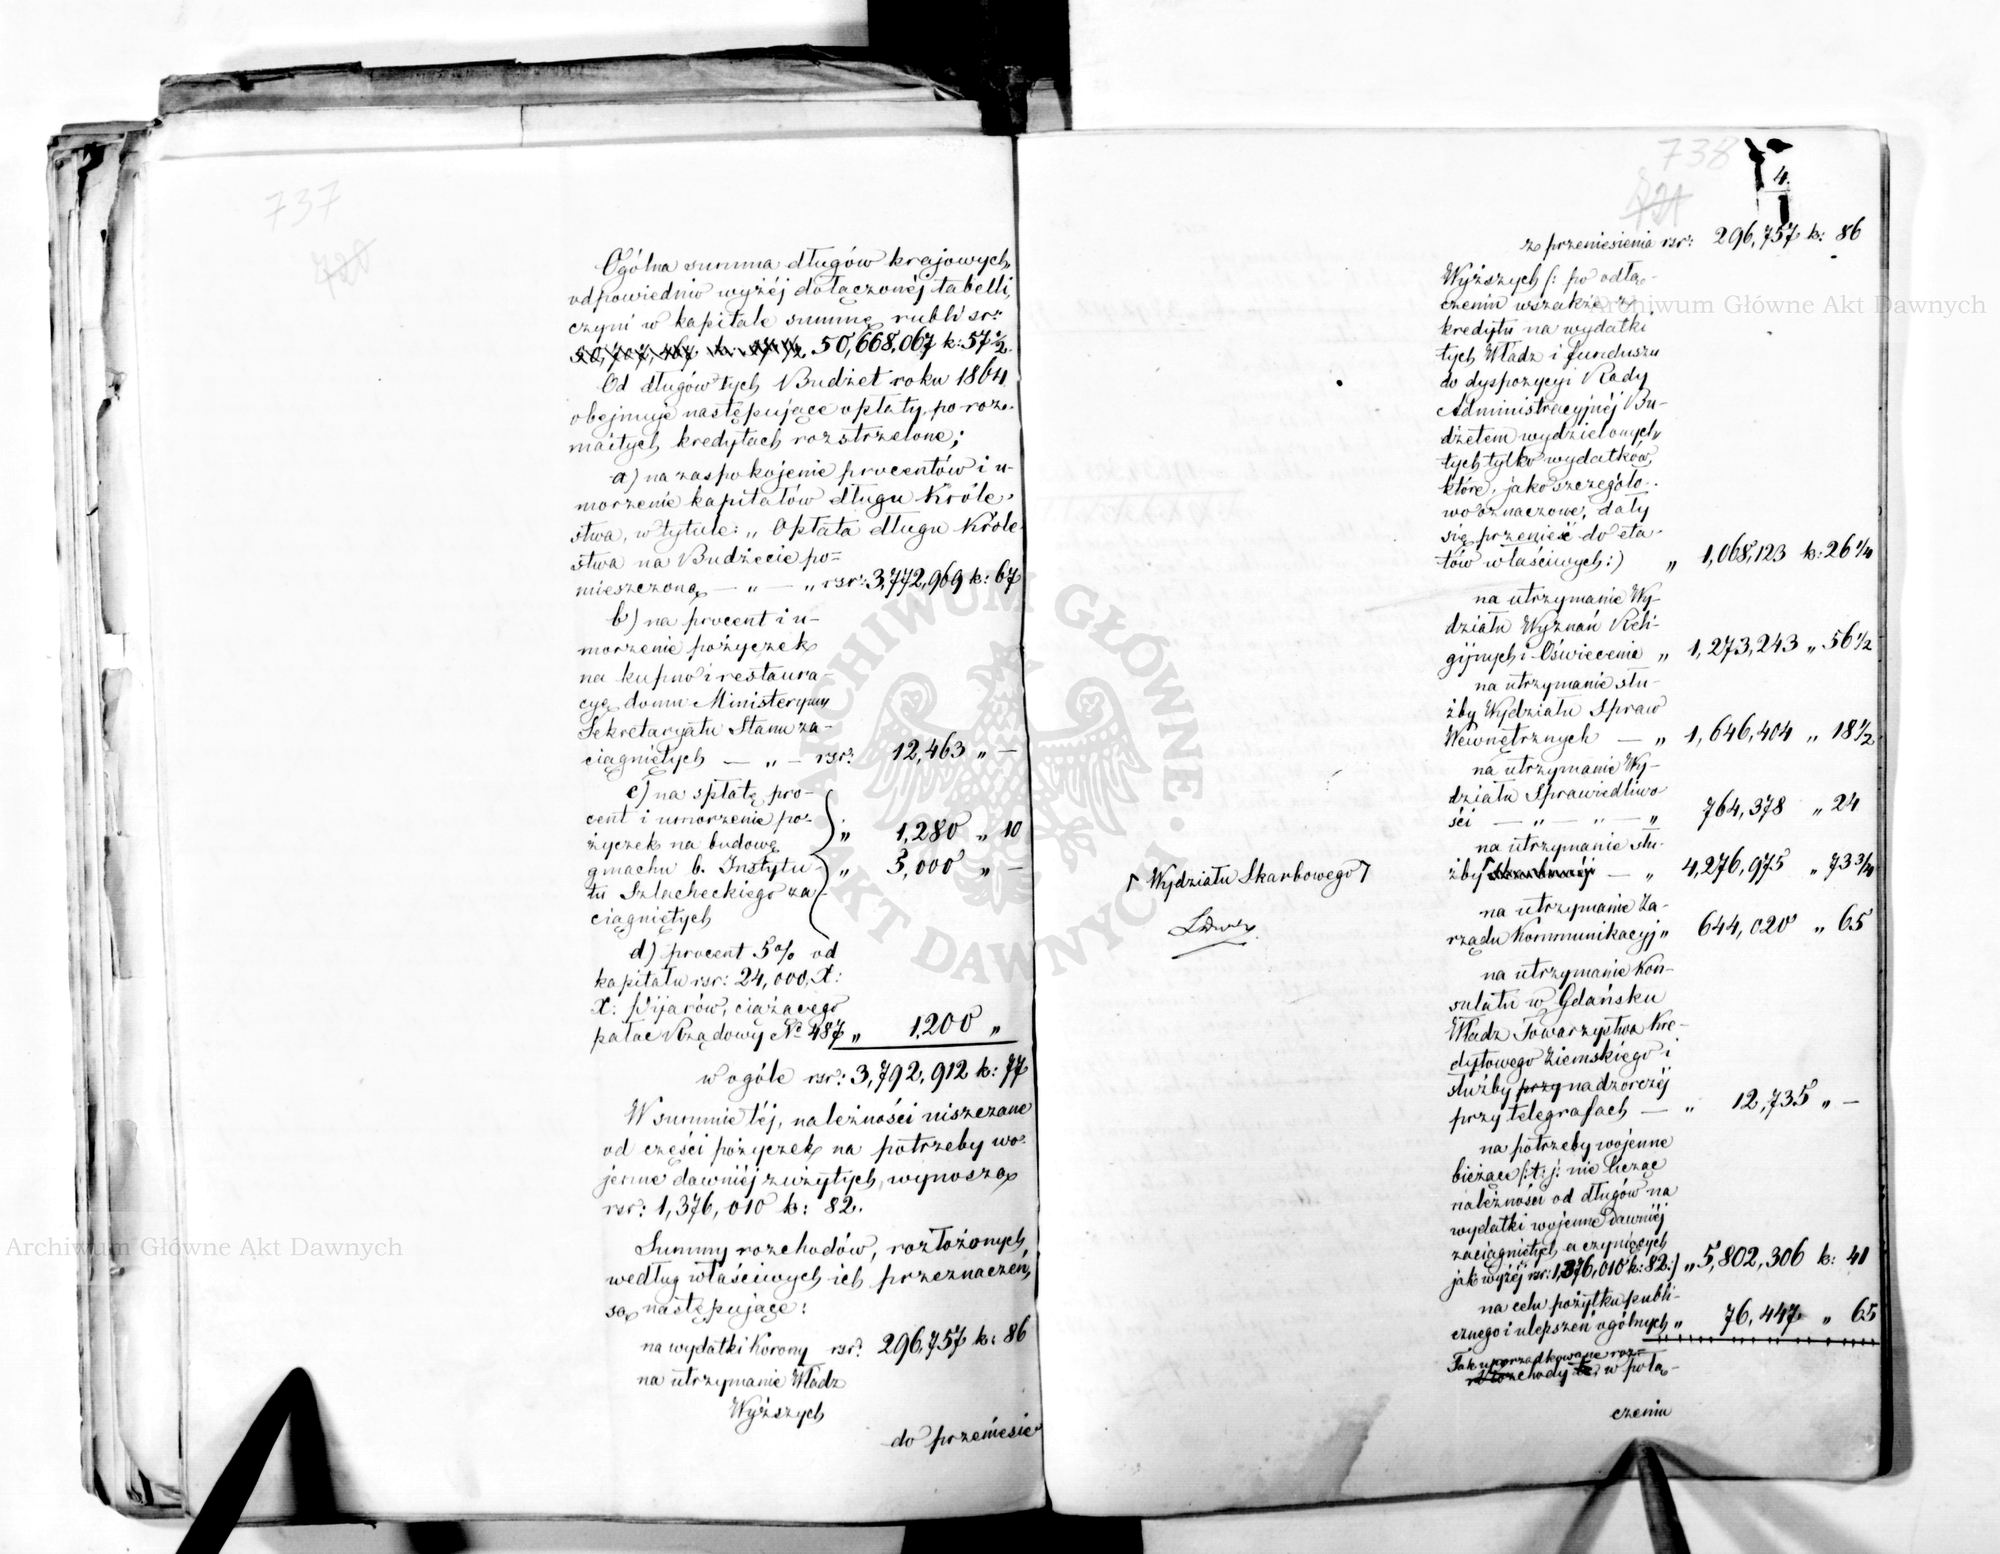 737
720
Ogólna summa długów krajowych,
odpowiednio wyżéj dołączonéj tabelli,
czyni w kapitale summę rubli sr:
50,668,067 k: 57½.
Od długów tych Budżet roku 1864
obejmuje następujące opłaty, po roz-
maitych kredytach rozstrzelone;
a) na zaspokojenie procentów i u-
morzenie kapitałów długu Króle-
stwa, w tytule: „Opłata długu Króle-
stwa na Budżecie po-
mieszczoną — „ — „ rsr: 3,772,969 k: 67
b) na procent i u-
morzenie pożyczek
na kupno i restaura-
cyą domu Ministeryum
Sekretaryatu Stanu za-
ciągniętych — „ — rsr: 12,463 „ —
c) na spłatę pro-
cent i umorzenie po-
życzek na budowę „ 1,280 „ 10
gmachu b. Instytu- „ 5,000 „ —
tu Szlacheckiego za-
ciągniętych
d) procent 5% od
kapitału rsr: 24,000, X:
X: Pijarów, ciążącego
pałac Rządowy No 487 „ 1,200 „
w ogóle rsr: 3,792,912 k: 77
W summie téj, należności uiszczane
od części pożyczek na potrzeby wo-
jenne dawniéj zużytych, wynoszą
rsr: 1,376,010 k: 82.
Summy rozchodów, rozłożonych
według właściwych ich przeznaczeń,
są następujące:
na wydatki Korony rsr: 296,757 k: 86
na utrzymanie Władz
Wyższych
do przeniesie
738
721
4.
z przeniesienia rsr: 296,757 k: 86
Wyższych (: po odłą-
czeniu wszakże z
kredytu na wydatki
tych Władz i funduszu
do dyspozycyi Rady
Administracyjnéj Bu-
dżetem wydzielonych,
tych tylko wydatków,
które, jako szczegóło-
wo oznaczone, dały
się przenieść do eta-
tów właściwych:) „ 1,068,123 k: 26¼
na utrzymanie Wy-
działu Wyznań Reli-
gijnych i Oświecenia „ 1,273,243 „ 56½
na utrzymanie słu-
żby Wydziału Spraw
Wewnętrznych — „ 1,646,404 „ 18½
na utrzymanie Wy-
działu Sprawiedliwo-
ści — „ — „ — „ 764,378 „ 24
na utrzymanie słu-
żby — „ 4,276,975 „ 73¾
Wydziału Skarbowego
na utrzymanie Za-
rządu Kommunikacyj „ 644,020 „ 65
na utrzymanie Kon-
sulatu w Gdańsku
Władz Towarzystwa Kre-
dytowego Ziemskiego i
służby przy nadzorczéj
przy telegrafach — „ 12,735 „ —
na potrzeby wojenne
bieżące (: t: j: nie licząc
należności od długów na
wydatki wojenne dawniéj
zaciągniętych a czyniących
jak wyżéj rsr: 1,376,010 k: 82:) „ 5,802,306 k: 41
na cele pożytku publi-
cznego i ulepszeń ogólnych „ 76,447 „ 65
Tak uporządkowane roz-
chody te, w połą-
czeniu
Archiwum Główne Akt Dawnych
Archiwum Główne Akt Dawnych
ARCHIWUM GŁÓWNE AKT DAWNYCH